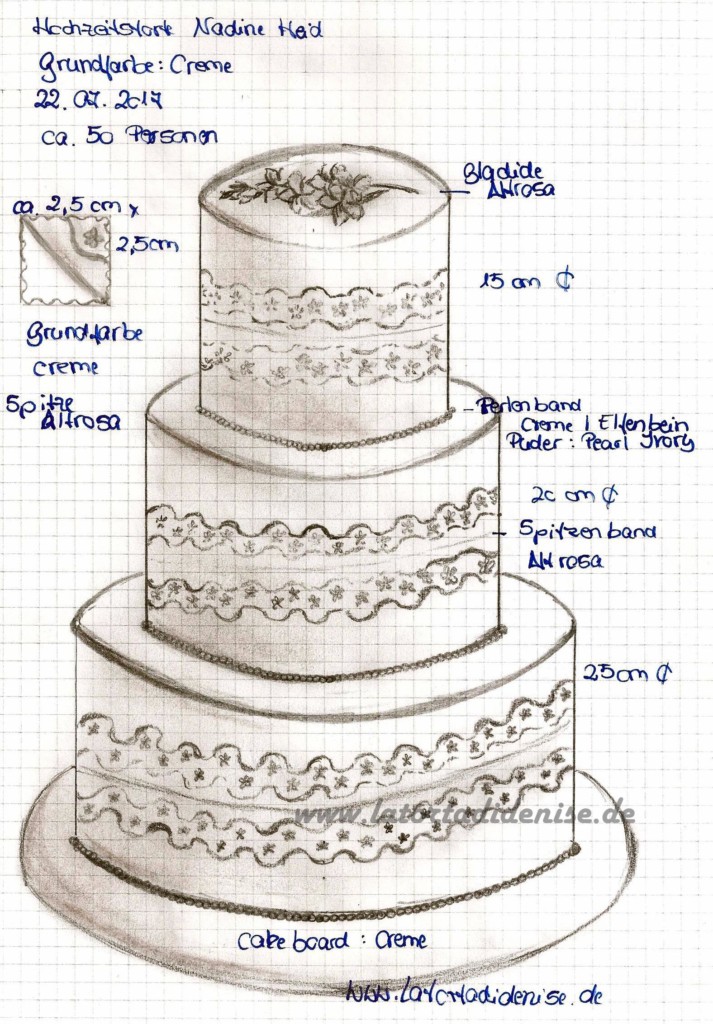 Hochzeitstorte Nadine Heid
Grundfarbe: Creme
22.07.2017
ca. 50 Personen
Gladiole
Altrosa
ca. 2,5 cm x
2,5cm
15 cm ₵
Grundfarbe
creme
Spitze
Altrosa
Perlenband
Creme / Elfenbein
Puder: Pearl Ivory
20 cm ₵
Spitzenband
Altrosa
25 cm ₵
www.latortadidenise.de
Cakeboard : Creme
www.latortadidenise.de